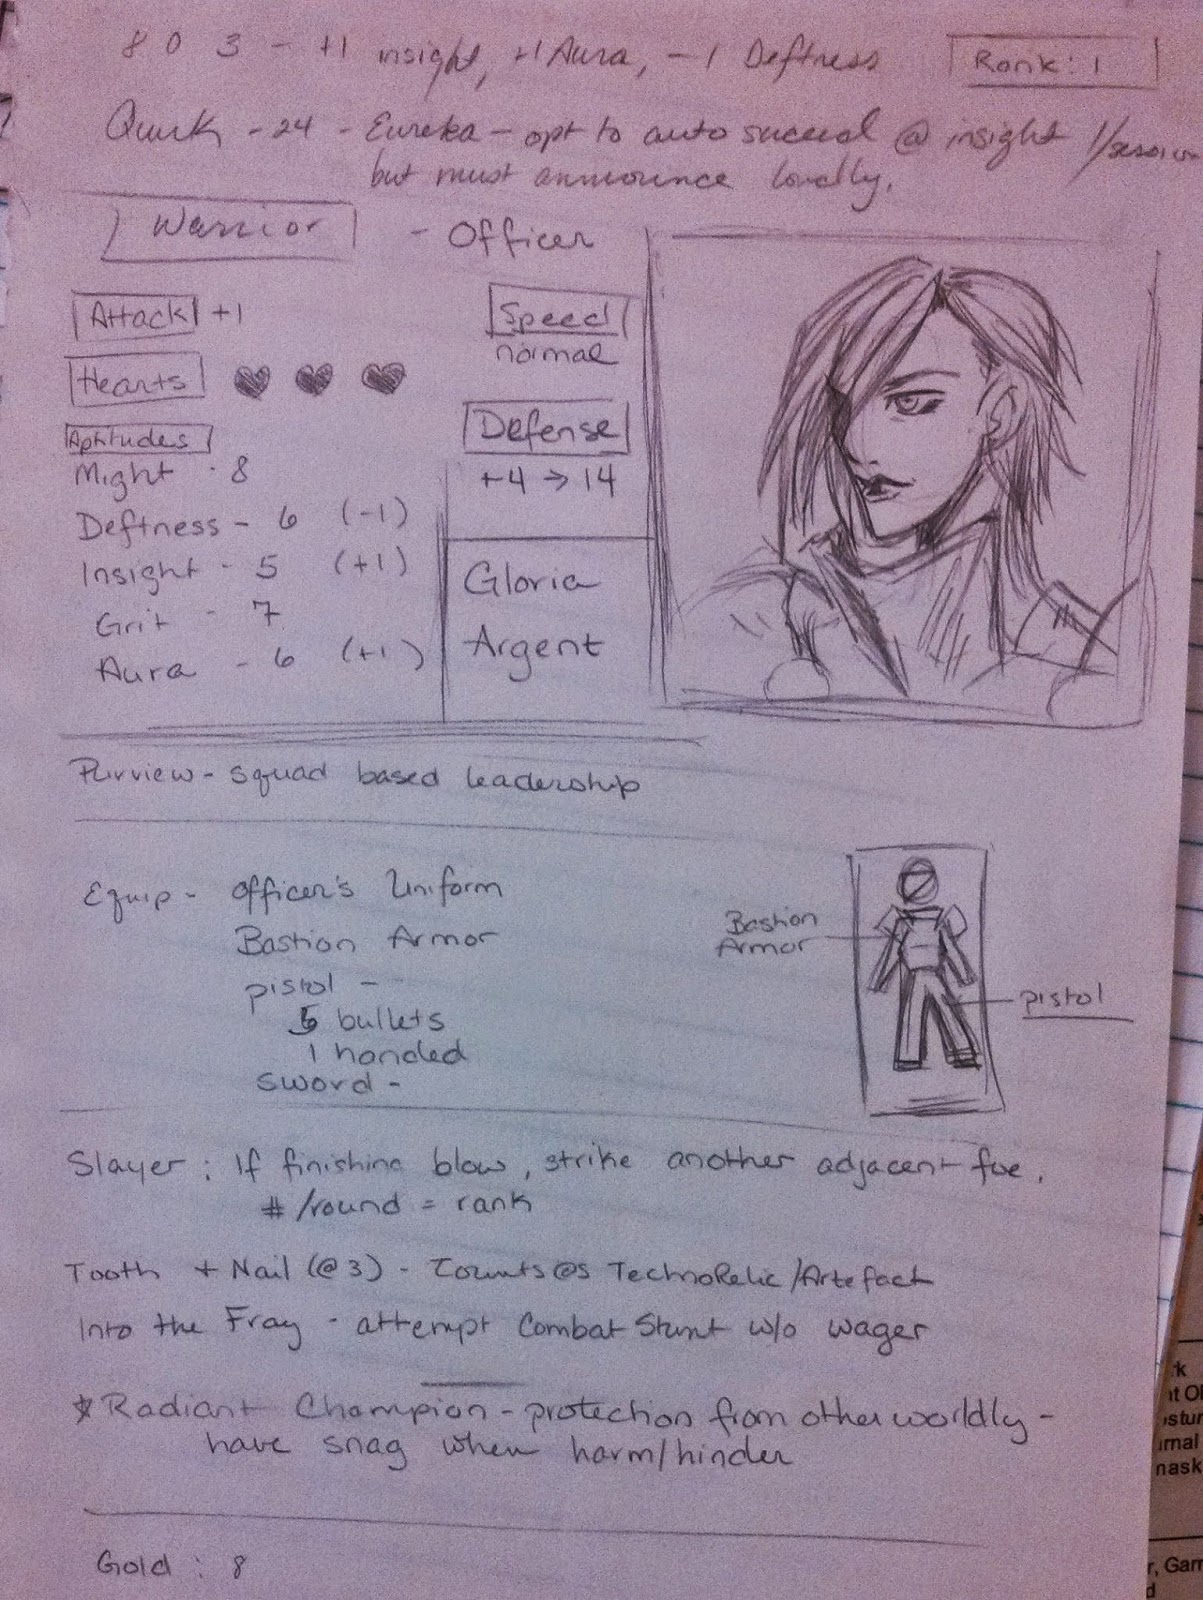 8 0 3 - +1 insight, +1 Aura, -1 Deftness
Rank: 1
Quirk - 24 - Eureka - opt to auto succeed @ insight 1/session
but must announce loudly.
Warrior - Officer
Attack +1
Speed
normal
Hearts
Aptitudes
Might - 8
Deftness - 6 (-1)
Insight - 5 (+1)
Grit - 7
Aura - 6 (+1)
Defense
+4 → 14
Gloria
Argent
Purview - squad based leadership
Equip - Officer's Uniform
Bastion Armor
pistol -
bullets
1 handed
sword -
Bastion
Armor
pistol
Slayer: If finishing blow, strike another adjacent foe.
# /round = rank
Tooth + Nail (@ 3) - Counts as TechnoRelic/Artefact
Into the Fray - attempt Combat Stunt w/o wager
* Radiant Champion - protection from otherworldly -
have snag when harm/hinder
Gold: 8